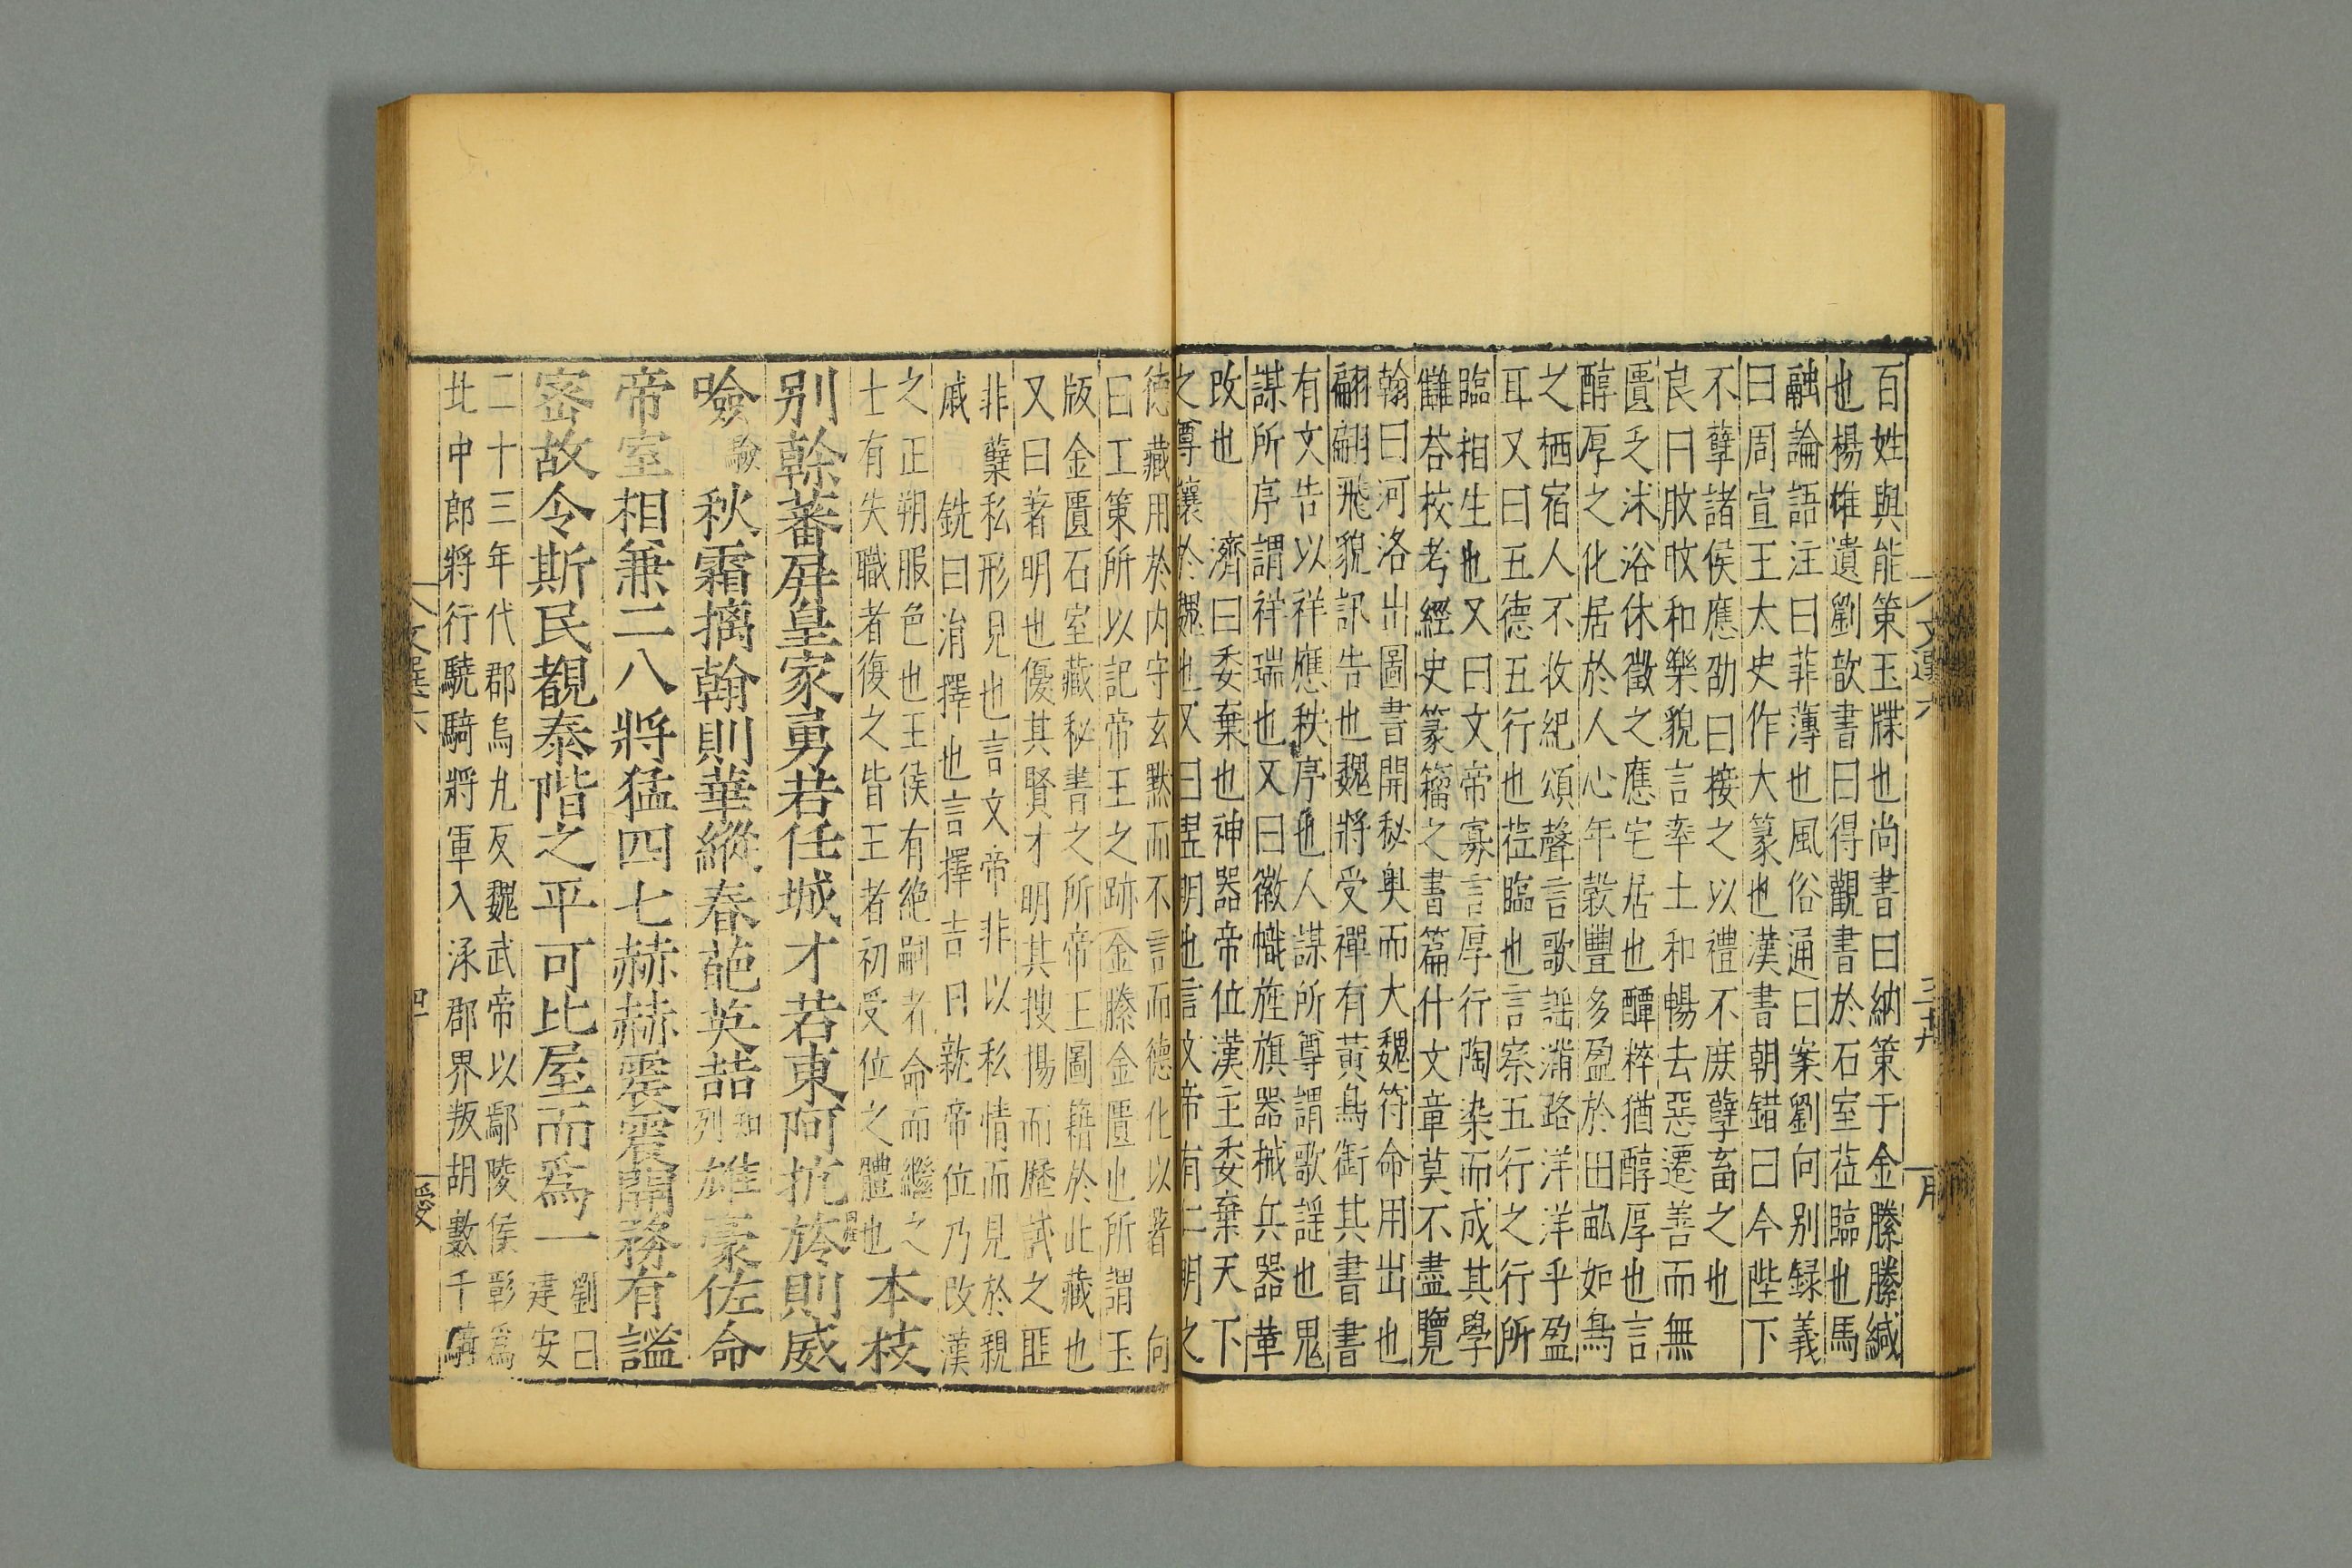 百姓與能策玉牒也尚書曰納策于金縢縢緘
也楊雄遺劉歆書曰得觀書於石室莅臨也馬
融論語注曰菲薄也風俗通曰案劉向別録義
曰周宣王太史作大篆也漢書朝錯曰今陛下
不孽諸侯應劭曰接之以禮不庶孽畜之也
良曰放牧和樂貌言率土和暢去惡遷善而無
匱乏沭浴休徵之應宅居也醰粹猶醇厚也言
醇厚之化居於人心年穀豐多盈於田畝如鳥
之栖宿人不收紀頌聲言歌謡滿路洋洋乎盈
耳又曰五德五行也莅臨也言察五行之行所
臨相生也又曰文帝寡言厚行陶染而成其學
讎荅校考經史篆籀之書篇什文章莫不盡覽
翰曰河洛出圖書開秘奥而大魏符命用出也
翩翩飛貌訊告也魏將受禪有黄鳥銜其書書
有文告以祥應秩序也人謀所尊謂歌謡也鬼
謀所序謂祥瑞也又曰徽幟旌旗器械兵器革
改也 濟曰委棄也神器帝位漢主委棄天下
之尊讓於魏也又曰昱明也言文帝有二明之
德藏用於内守玄默而不言而德化以著 向
曰工策所以記帝王之跡金縢金匱也所謂玉
版金匱石室藏秘書之所帝王圖籍於此藏也
又曰著明也優其賢才明其搜揚而歷試之匪
非孽私形見也言文帝非以私情而見於親
戚 銑曰涓擇也言擇吉日就帝位乃改漢
之正朔服色也王侯有絶嗣者命而繼之
士有失職者復之皆王者初受位之體也
本枝
别幹蕃屏皇家勇若任城才若東阿抗旍則威
噞秋霜摛翰則華縱春葩英喆雄豪佐命
帝室相兼二八將猛四七赫赫震震開務有謐
宻故令斯民覩泰階之平可比屋而爲一
劉曰
建安
二十三年代郡烏丸反魏武帝以鄢陵侯彰爲
北中郎將行驍騎將軍入涿郡界叛胡數千騎